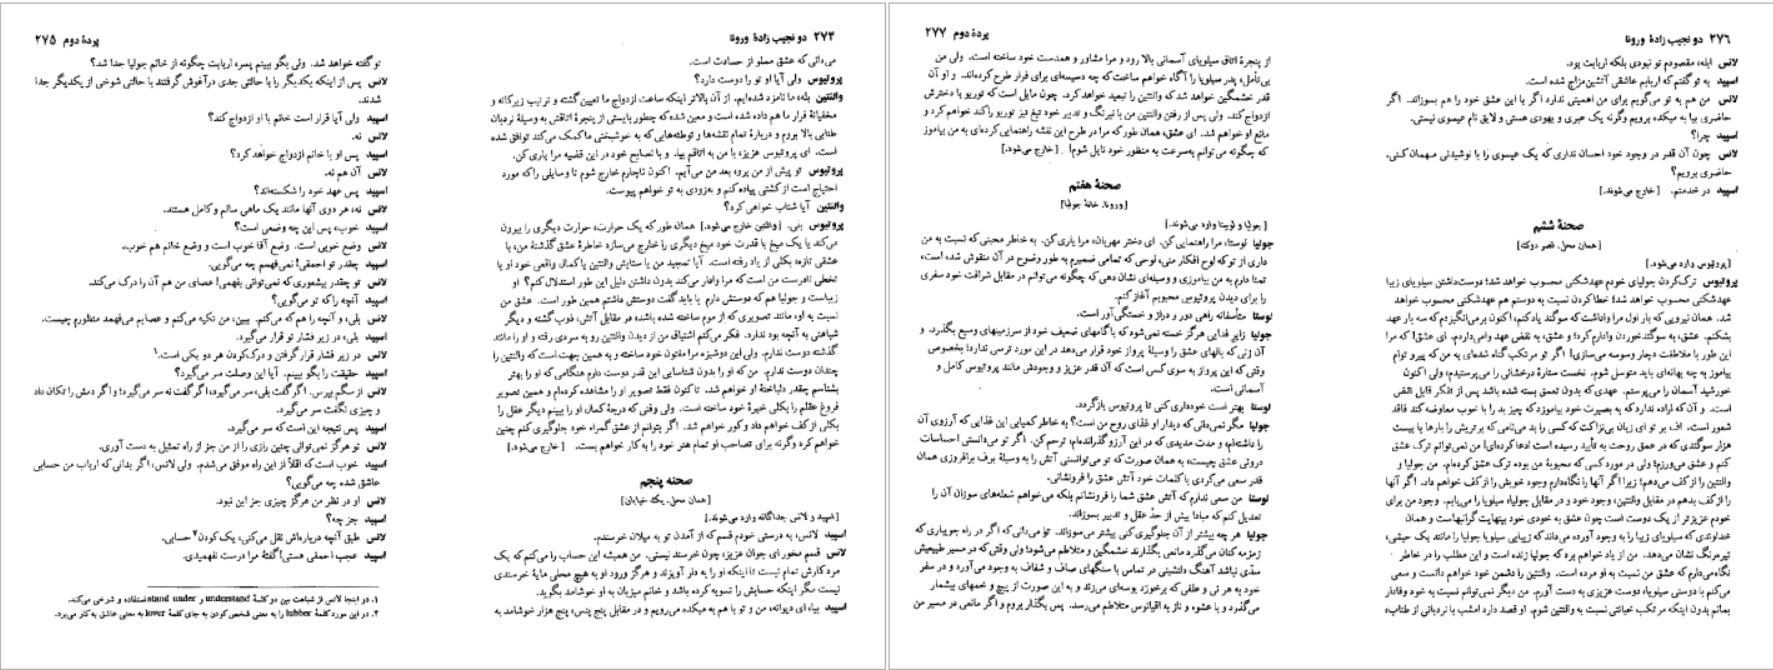 ۲۷۴ دو نجیب زادهٔ ورونا
می‌دانی که عشق مملو از حسادت است.
پروتیوس ولی آیا او تو را دوست دارد؟
والنتین بله، ما نامزد شده‌ایم. از آن بالاتر اینکه ساعت ازدواج ما تعیین گشته و ترتیب زیرکانه و
مخفیانهٔ فرار ما هم داده شده است و معین شده که چطور بایستی از پنجرهٔ اتاقش به وسیلهٔ نردبان
طنابی بالا بروم و دربارهٔ تمام نقشه‌ها و توطئه‌هایی که به خوشبختی ما کمک می‌کند توافق شده
است. ای پروتیوس عزیز، با من به اتاقم بیا. و با نصایح خود در این قضیه مرا یاری کن.
پروتیوس تو پیش از من برو، بعد من می‌آیم. اکنون ناچارم خارج شوم تا وسایلی را که مورد
احتیاج است از کشتی پیاده کنم و به‌زودی به تو خواهم پیوست.
والنتین آیا شتاب خواهی کرد؟
پروتیوس بلی. [والنتین خارج می‌شود.] همان طور که یک حرارت، حرارت دیگری را بیرون
می‌کند یا یک میخ با قدرت خود میخ دیگری را خارج می‌سازد خاطرهٔ عشق گذشتهٔ من، با
عشقی تازه، بکلی از یاد رفته است. آیا تمجید من یا ستایش والنتین یا کمال واقعی خود او یا
تخطی نادرست من است که مرا وادار می‌کند بدون داشتن دلیل این طور استدلال کنم؟ او
زیباست و جولیا هم که دوستش دارم یا باید گفت دوستش داشتم همین طور است. عشق من
نسبت به او، مانند تصویری که از موم ساخته شده باشد، در مقابل آتش، ذوب گشته و دیگر
شباهتی به آنچه بود ندارد. فکر می‌کنم اشتیاق من از دیدن والنتین رو به سردی رفته و او را مانند
گذشته دوست ندارم. ولی این دوشیزه مرا مفتون خود ساخته و به همین جهت است که والنتین را
چندان دوست ندارم. من که او را بدون شناسایی این قدر دوست دارم هنگامی که او را بهتر
بشناسم چقدر دلباختهٔ او خواهم شد. تاکنون فقط تصویر او را مشاهده کرده‌ام و همین تصویر
فروغ عقلم را بکلی خیرهٔ خود ساخته است. ولی وقتی که درجهٔ کمال او را ببینم دیگر عقل را
بکلی از کف خواهم داد و کور خواهم شد. اگر بتوانم از عشق گمراه خود جلوگیری کنم چنین
خواهم کرد وگرنه برای تصاحب او تمام هنر خود را به کار خواهم بست. [خارج می‌شود.]
صحنه پنجم
[همان محل. یک خیابان]
[اسپید و لانس جداگانه وارد می‌شوند.]
اسپید لانس، به درستی خودم قسم که از آمدن تو به میلان خرسندم.
لانس قسم مخور ای جوان عزیز، چون خرسند نیستی. من همیشه این حساب را می‌کنم که یک
مرد کارش تمام نیست تا اینکه او را به دار آویزند و هرگز ورود او به هیچ محلی مایهٔ خرسندی
نیست مگر اینکه حسابش را تسویه کرده باشد و خانم میزبان به او خوشامد بگوید.
اسپید بیا، ای دیوانه، من و تو با هم به میکده می‌رویم و در مقابل پنج پنس، پنج هزار خوشامد به
پردهٔ دوم ۲۷۵
تو گفته خواهد شد. ولی بگو ببینم پسر، اربابت چگونه از خانم جولیا جدا شد؟
لانس پس از اینکه یکدیگر را با حالتی جدی درآغوش گرفتند با حالتی شوخی از یکدیگر جدا
شدند.
اسپید ولی آیا قرار است خانم با او ازدواج کند؟
لانس نه.
اسپید پس او با خانم ازدواج خواهد کرد؟
لانس آن هم نه.
اسپید پس عهد خود را شکسته‌اند؟
لانس نه، هر دوی آنها مانند یک ماهی سالم و کامل هستند.
اسپید خوب، پس این چه وضعی است؟
لانس وضع خوبی است. وضع آقا خوب است و وضع خانم هم خوب.
اسپید چقدر تو احمقی! نمی‌فهمم چه می‌گویی.
لانس تو چقدر بیشعوری که نمی‌توانی بفهمی! عصای من هم آن را درک می‌کند.
اسپید آنچه را که تو می‌گویی؟
لانس بلی، و آنچه را هم که می‌کنم. ببین، من تکیه می‌کنم و عصایم می‌فهمد منظورم چیست.
اسپید بلی، در زیر فشار تو قرار می‌گیرد.
لانس در زیر فشار قرار گرفتن و درک‌کردن هر دو یکی است.۱
اسپید حقیقت را بگو ببینم. آیا این وصلت سر می‌گیرد؟
لانس از سگم بپرس. اگر گفت بلی، سر می‌گیرد، اگر گفت نه سر می‌گیرد؛ و اگر دمش را تکان داد
و چیزی نگفت سر می‌گیرد.
اسپید پس نتیجه این است که سر می‌گیرد.
لانس تو هرگز نمی‌توانی چنین رازی را از من جز از راه تمثیل به دست آوری.
اسپید خوب است که اقلاً از این راه موفق می‌شدم. ولی لانس، اگر بدانی که ارباب من حسابی
عاشق شده چه می‌گویی؟
لانس او در نظر من هرگز چیزی جز این نبود.
اسپید جز چه؟
لانس طبق آنچه درباره‌اش نقل می‌کنی، یک کودن۲ حسابی.
اسپید عجب احمقی هستی! گفتهٔ مرا درست نفهمیدی.
۱. در اینجا لانس از شباهت بین دو کلمهٔ understand و stand under استفاده و شوخی می‌کند.
۲. در این مورد کلمهٔ lubber را به معنی شخصی کودن به جای کلمهٔ lover به معنی عاشق به کار می‌برد.
۲۷۶ دو نجیب زادهٔ ورونا
لانس ابله، مقصودم تو نبودی بلکه اربابت بود.
اسپید به تو گفتم که اربابم عاشقی آتشین‌مزاج شده است.
لانس من هم به تو می‌گویم برای من اهمیتی ندارد اگر با این عشق خود را هم بسوزاند. اگر
حاضری بیا به میکده برویم وگرنه یک عبری و یهودی هستی و لایق نام عیسوی نیستی.
اسپید چرا؟
لانس چون آن قدر در وجود خود احسان نداری که یک عیسوی را با نوشیدنی مهمان کنی.
حاضری برویم؟
اسپید در خدمتم. [خارج می‌شوند.]
صحنهٔ ششم
[همان محل. قصر دوک]
[پروتیوس وارد می‌شود.]
پروتیوس ترک‌کردن جولیای خودم عهدشکنی محسوب خواهد شد؛ دوست‌داشتن سیلویای زیبا
عهدشکنی محسوب خواهد شد؛ خطاکردن نسبت به دوستم هم عهدشکنی محسوب خواهد
شد. همان نیرویی که بار اول مرا واداشت که سوگند یاد کنم، اکنون برمی‌انگیزدم که سه بار عهد
بشکنم. عشق، به سوگندخوردن وادارم کرد؛ و عشق، به نقض عهد وامی‌داردم. ای عشق! که مرا
این طور با ملاطفت دچار وسوسه می‌سازی! اگر تو مرتکب گناه شده‌ای به من که پیرو توام
بیاموز به چه بهانه‌ای باید متوسل شوم. نخست ستارهٔ درخشانی را می‌پرستیدم، ولی اکنون
خورشید آسمان را می‌پرستم. عهدی که بدون تعمق بسته شده باشد پس از تفکر قابل نقض
است. و آن که اراده ندارد که به بصیرت خود بیاموزد که چیز بد را با خوب معاوضه کند فاقد
شعور است. اف بر تو ای زبان بی‌نزاکت که کسی را بد می‌نامی که برتریش را بارها با بیست
هزار سوگندی که در عمق روحت به تأیید رسیده است ادعا کرده‌ای! من نمی‌توانم ترک عشق
کنم و عشق می‌ورزم؛ ولی در مورد کسی که محبوبهٔ من بوده ترک عشق کرده‌ام. من جولیا و
والنتین را از کف می‌دهم؛ زیرا اگر آنها را نگاه‌دارم وجود خویش را از کف خواهم داد. اگر آنها
را از کف بدهم در مقابل والنتین، وجود خود و در مقابل جولیا، سیلویا را می‌یابم. وجود من برای
خودم عزیزتر از یک دوست است چون عشق به خودی خود بینهایت گرانبهاست و همان
خداوندی که سیلویای زیبا را به وجود آورده می‌داند که زیبایی سیلویا جولیا را مانند یک حبشی،
تیره‌رنگ نشان می‌دهد. من از یاد خواهم برد که جولیا زنده است و این مطلب را در خاطر
نگاه می‌دارم که عشق من نسبت به او مرده است. والنتین را دشمن خود خواهم دانست و سعی
می‌کنم با دوستی سیلویا، دوست عزیزی به دست آورم. من دیگر نمی‌توانم نسبت به خود وفادار
بمانم بدون اینکه مرتکب خیانتی نسبت به والنتین شوم. او قصد دارد امشب با نردبانی از طناب،
پردهٔ دوم ۲۷۷
از پنجرهٔ اتاق سیلویای آسمانی بالا رود و مرا مشاور و همدست خود ساخته است. ولی من
بی‌تأمل، پدر سیلویا را آگاه خواهم ساخت که چه دسیسه‌ای برای فرار طرح کرده‌اند. و او آن
قدر خشمگین خواهد شد که والنتین را تبعید خواهد کرد. چون مایل است که توریو با دخترش
ازدواج کند. ولی پس از رفتن والنتین من با نیرنگ و تدبیر خود تیغ تیز توریو را کند خواهم کرد و
مانع او خواهم شد. ای عشق، همان طور که مرا در طرح این نقشه راهنمایی کرده‌ای به من بیاموز
که چگونه می‌توانم به‌سرعت به منظور خود نایل شوم! [خارج می‌شود.]
صحنهٔ هفتم
[ورونا. خانهٔ جولیا]
[جولیا و لوستا وارد می‌شوند.]
جولیا لوستا، مرا راهنمایی کن. ای دختر مهربان، مرا یاری کن. به خاطر محبتی که نسبت به من
داری از تو که لوح افکار منی، لوحی که تمامی ضمیرم به طور وضوح در آن منقوش شده است،
تمنا دارم به من بیاموزی و وسیله‌ای نشان دهی که چگونه می‌توانم در مقابل شرافت خود سفری
را برای دیدن پروتیوس محبوبم آغاز کنم.
لوستا متأسفانه راهی دور و دراز و خستگی‌آور است.
جولیا زایر فدایی هرگز خسته نمی‌شود که با گامهای ضعیف خود از سرزمینهای وسیع بگذرد. و
آن زنی که بالهای عشق را وسیلهٔ پرواز خود قرار می‌دهد در این مورد ترسی ندارد؛ بخصوص
وقتی که این پرواز به سوی کسی است که آن قدر عزیز و وجودش مانند پروتیوس کامل و
آسمانی است.
لوستا بهتر است خودداری کنی تا پروتیوس بازگردد.
جولیا مگر نمی‌دانی که دیدار او غذای روح من است؟ به خاطر کمیابی این غذایی که آرزوی آن
را داشته‌ام، و مدت مدیدی که در این آرزو گذرانده‌ام، ترحم کن. اگر تو می‌دانستی احساسات
درونی عشق چیست، به همان صورت که تو می‌توانستی آتش را به وسیلهٔ برف برافروزی همان
قدر سعی می‌کردی با کلمات خود آتش عشق را فرونشانی.
لوستا من سعی ندارم که آتش عشق شما را فرونشانم بلکه می‌خواهم شعله‌های سوزان آن را
تعدیل کنم که مبادا بیش از حدّ عقل و تدبیر بسوزاند.
جولیا هر چه بیشتر از آن جلوگیری کنی بیشتر می‌سوزاند. تو می‌دانی که اگر در راه جویباری که
زمزمه کنان می‌گذرد مانعی بگذارند خشمگین و متلاطم می‌شود؛ ولی وقتی که در مسیر طبیعیش
سدّی نباشد آهنگ دلنشینی در تماس با سنگهای صاف و شفاف به وجود می‌آورد و در سفر
خود به هر نی و علفی که برخورد بوسه‌ای می‌زند و به این صورت از پیچ و خمهای بیشمار
می‌گذرد و با عشوه و ناز به اقیانوس متلاطم می‌رسد. پس بگذار بروم و اگر مانعی در مسیر من